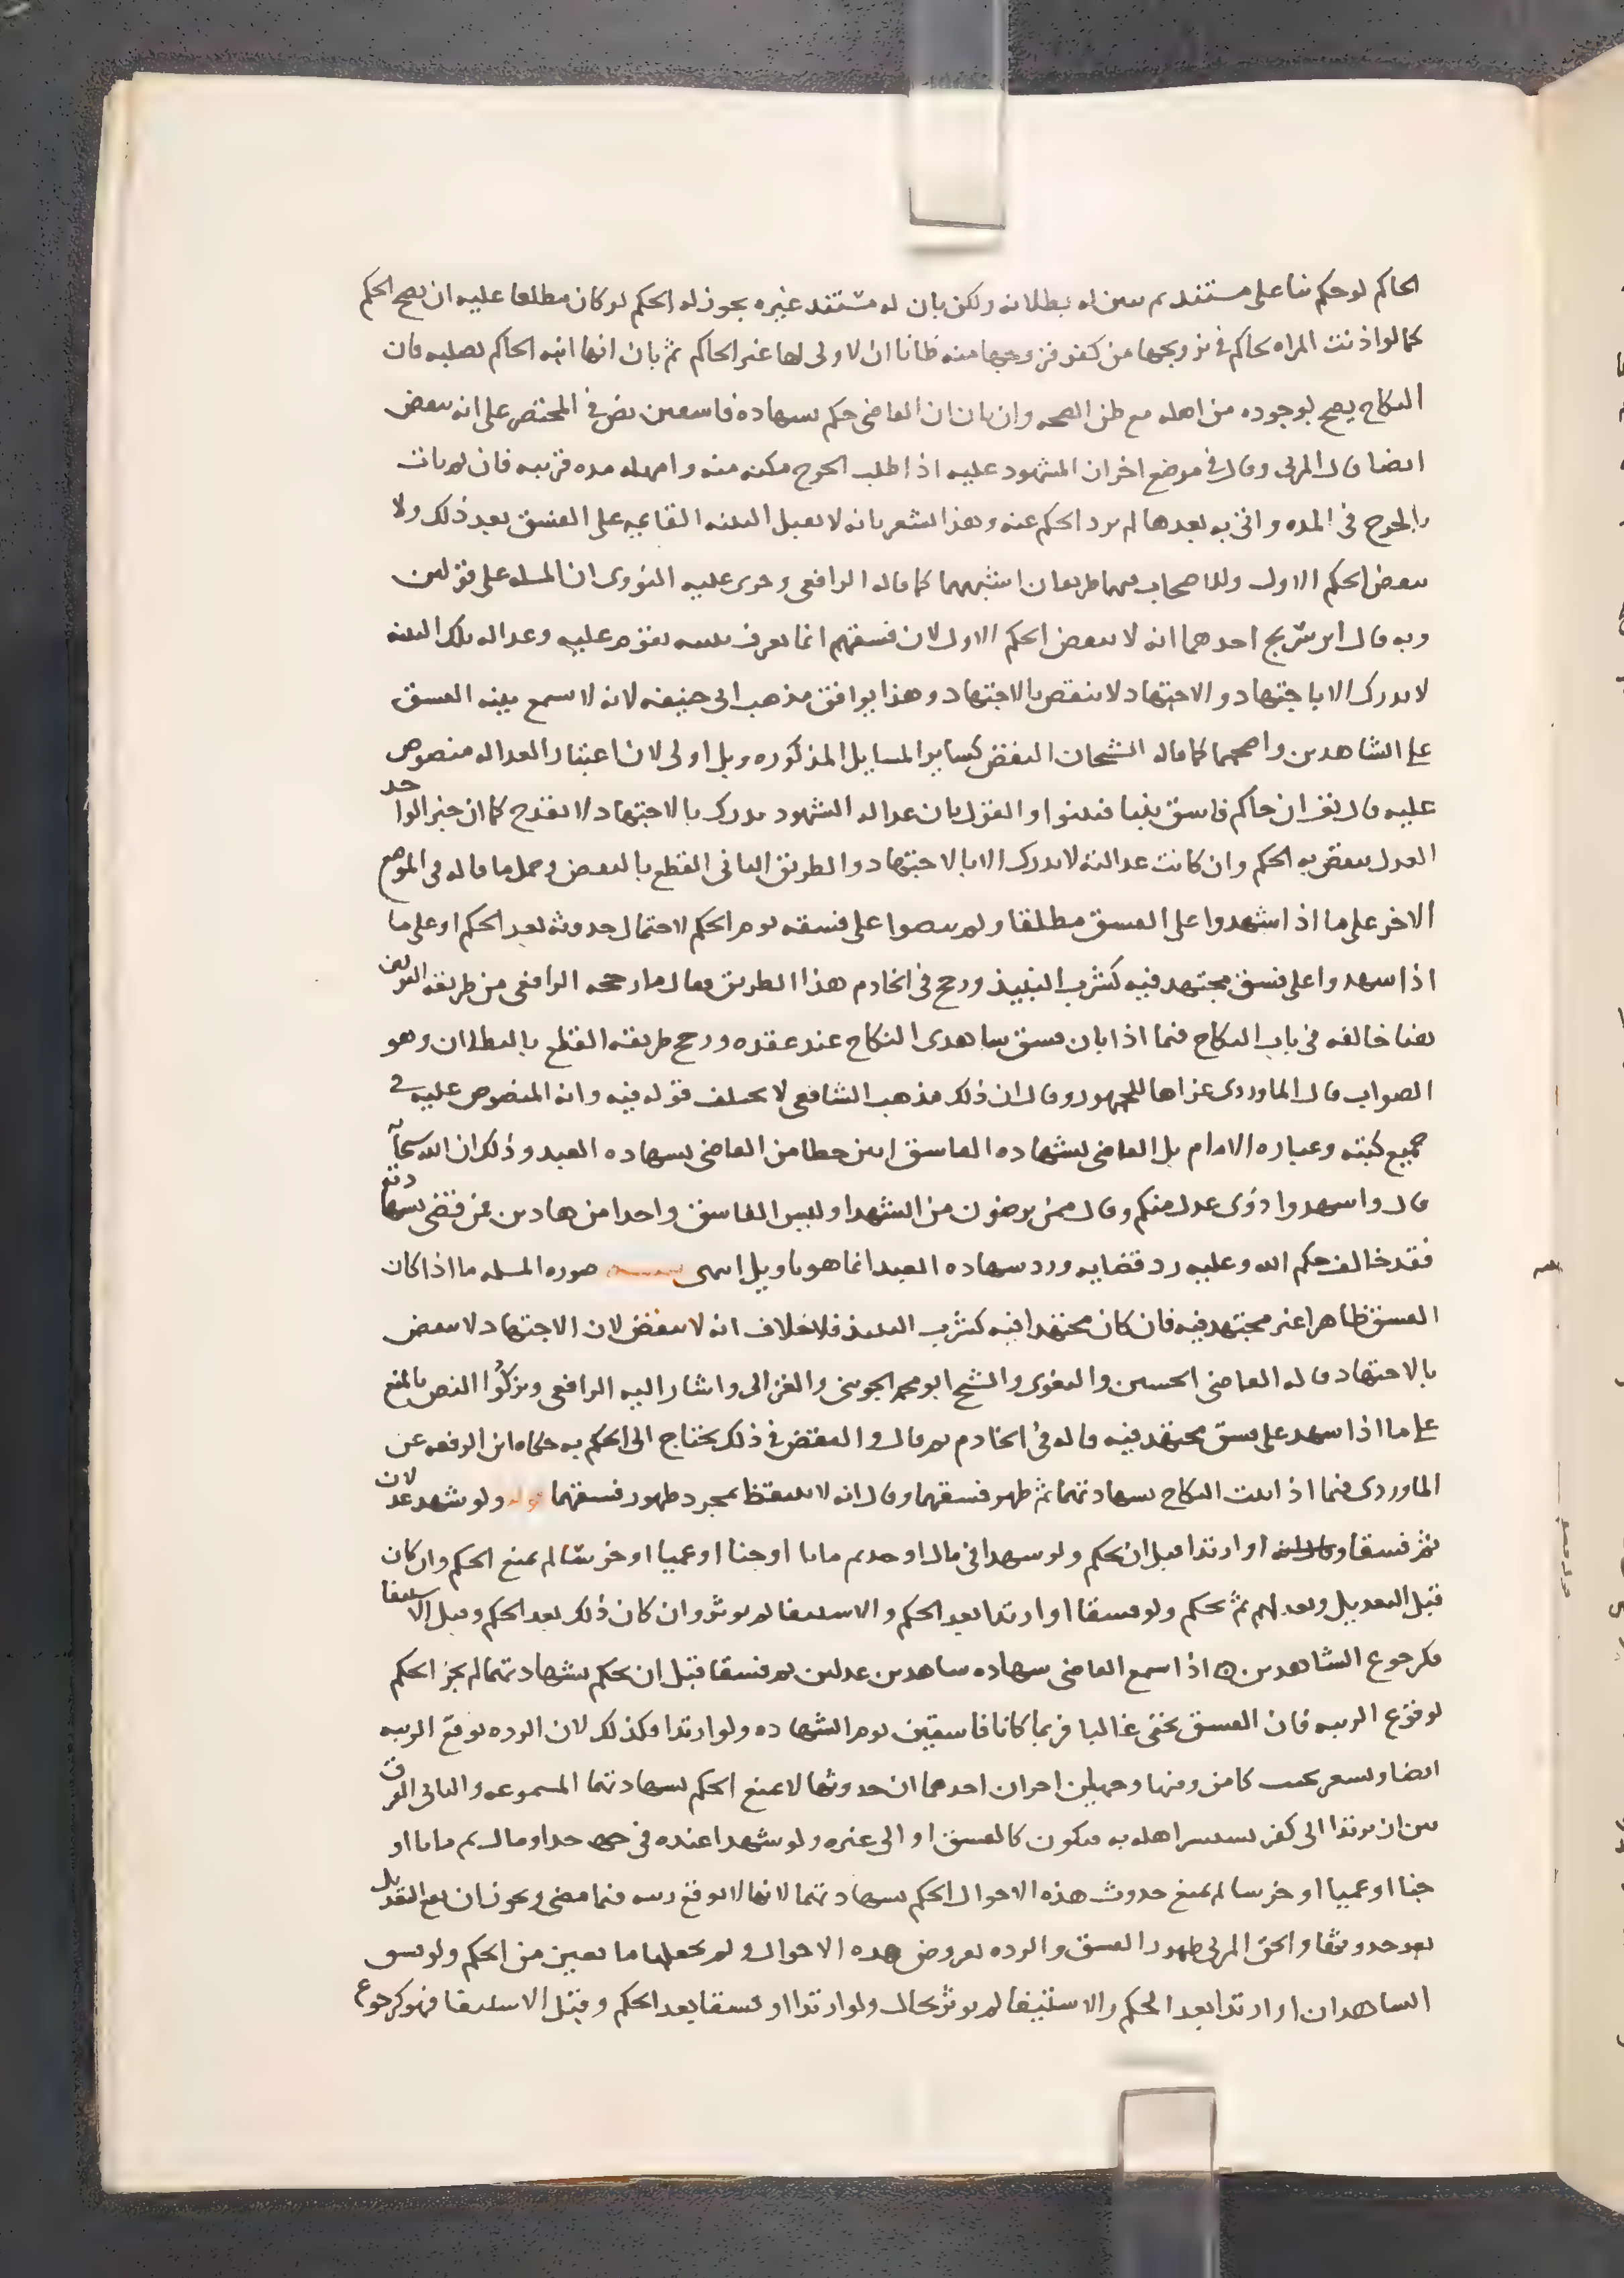 الحاكم لو حكم بنا على مستند ثم تبين له بطلانه ولكن بان له مستند غيره يجوز له الحكم لو كان مطلعا عليه ان يصح الحكم
كما لو اذنت المراه لحاكم في تزويجها من كفو فزوجها منه ظانا ان لا ولي لها غير الحاكم ثم بان انها ابنه الحاكم لصلبه فان
النكاح يصح لوجوده من اهله مع ظن الصحه وان بان ان القاضي حكم بشهاده فاسقين نص في المختصر على انه ينقض
ايضا قال المزني وقال في موضع اخر ان المشهود عليه اذا طلب الجرح مكنه منه وامهله مده قريبه فان لم يات
بالجرح في المده واتى به بعدها لم يرد الحكم عنه وهذا يشعر بانه لا يقبل البينه القايمه على الفسق بعد ذلك ولا
ينقض الحكم الاول وللاصحاب فيهما طريقان اشبههما كما قاله الرافعي وجرى عليه النووي ان المسله على قولين
وبه قال ابن سريج احدهما انه لا ينقض الحكم الاول لان فسقهم انما يعرف ببينه تقوم عليه وعداله تلك البينه
لا يدرك الا باجتهاد والاجتهاد لا ينقض بالاجتهاد وهذا يوافق مذهب ابي حنيفه لانه لا يسمع بينه الفسق
على الشاهدين واصحهما كما قاله الشيخان النقض كساير المسايل المذكوره وبل اولى لان اعتبار العداله منصوص
عليه قال تعالى ان جاكم فاسق بنبا فتبينوا والقول بان عداله الشهود يدرك بالاجتهاد لا يقدح كما ان خبر الواحد
العدل ينقض به الحكم وان كانت عدالته لا يدرك الا بالاجتهاد والطريق الثاني القطع بالنقض وحمل ما قاله في الموضع
الاخر على ما اذا شهدوا على الفسق مطلقا ولم ينصوا على فسقه يوم الحكم لاحتمال حدوثه بعد الحكم او على ما
اذا شهدوا على فسق مجتهد فيه كشرب النبيذ ورجح في الخادم هذا الطريق فقال ما رجحه الرافعي من طريقه القولين
هنا خالفه في باب النكاح فيما اذا بان فسق شاهدي النكاح عند عقده ورجح طريقه القطع بالبطلان وهو
الصواب قال الماوردي عزاها للجمهور وقال ان ذلك مذهب الشافعي لا يختلف قوله فيه وانه المنصوص عليه في
جميع كتبه وعباره الام بل القاضي بشهاده الفاسق ابين خطا من القاضي بشهاده العبد وذلك ان الله سبحانه
قال واشهدوا ذوي عدل منكم وقال ممن ترضون من الشهدا وليس الفاسق واحدا من هاذين فمن قضى بشهادته
فقد خالف حكم الله وعليه رد قضايه ورد شهاده العبد انما هو تاويل انتهى تنبيه صوره المسله ما اذا كان
الفسق ظاهرا غير مجتهد فيه فان كان مجتهدا فيه كشرب النبيذ فلا خلاف انه لا ينقض لان الاجتهاد لا ينقض
بالاجتهاد قاله القاضي الحسين والبغوي والشيخ ابو محمد الجويني والغزالي واشار اليه الرافعي ونزلوا النص بالمنع
على ما اذا شهد على فسق مجتهد فيه قاله في الخادم ثم قال والنقض في ذلك يحتاج الى الحكم به حكاه ابن الرفعه عن
الماوردي فيما اذا اثبت النكاح بشهادتهما ثم ظهر فسقهما وقال انه لا ينتقض بمجرد ظهور فسقهما قوله ولو شهد عدلان
ثم فسقا او ارتدا قبل ان يحكم ولو شهدا في مال او حد ثم ماتا او جنا او عميا او خرسا لم يمنع الحكم وان كان
قبل التعديل وبعدلهم ثم يحكم ولو فسقا او ارتدا بعد الحكم والاستيفا لم يوثر وان كان ذلك بعد الحكم وقبل الاستيفا
فكرجوع الشاهدين اذا سمع القاضي شهاده شاهدين عدلين ثم فسقا قبل ان يحكم بشهادتهما لم يجز الحكم
لوقوع الريبه فان الفسق يخفى غالبا فربما كانا فاسقين يوم الشهاده ولو ارتدا فكذلك لان الرده توقع الريبه
ايضا ويشعر بخبث كامن وفيها وجهان اخران احدهما ان حدوثها لا يمنع الحكم بشهادتهما المسموعه والثاني الفرق
بين ان يرتدا الى كفر يستسر اهله به فيكون كالفسق او الى غيره ولو شهدا عنده في حد او مال ثم ماتا او
جنا او عميا او خرسا لم يمنع حدوث هذه الاحوال الحكم بشهادتهما لانها لا توقع ريبه فيما مضى ويجوز ان يقع التعديل
بعد حدوثها والحق المزني ظهور الفسق والرده بعروض هذه الاحوال ولم يجعلها مانعين من الحكم ولو فسق
الشاهدان او ارتدا بعد الحكم والاستيفا لم يوثر بحال ولو ارتدا او فسقا بعد الحكم وقبل الاستيفا فهو كرجوع